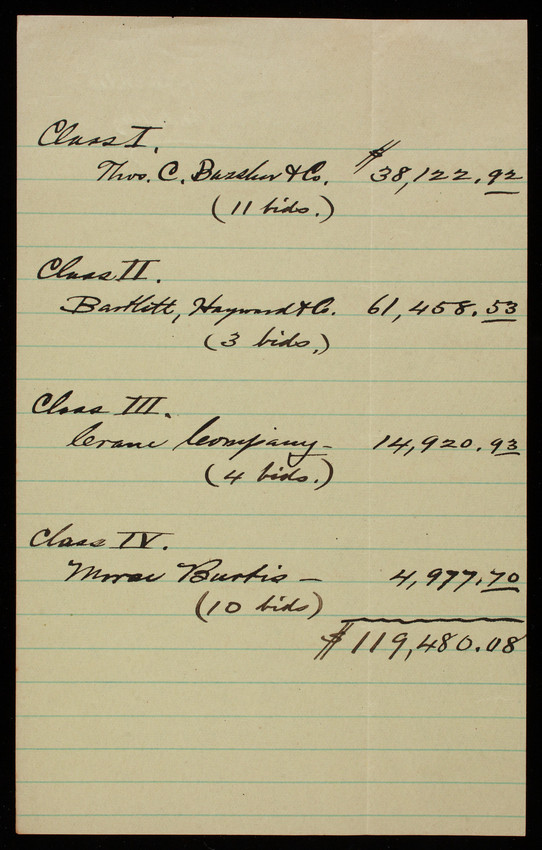 Class I.
Thos. C. Basshor & Co. $38,122.92
(11 bids.)
Class II.
Bartlett, Hayward & Co. 61,458.53
(3 bids.)
Class III.
Crane Company – 14,920.93
(4 bids.)
Class IV.
Morse Burtis – 4,977.70
(10 bids)
$119,480.08